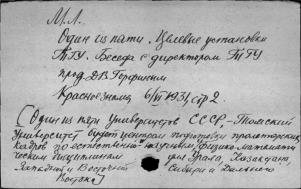 М.Л.
Один из пяти. Целевые установки
ТГУ. Беседа с директором ТГУ
проф. Д.В. Горфиным
Красное знамя, 6/VI 1931, стр 2.
(Один из пяти Университетов СССР - Томский
Университет будет центром подготовки пролетарских
кадров по естественно-научным, физико-математи-
ческим дисциплинам для Урала, Казакстана,
Западной и Восточной Сибири и Дальнего
Востока)